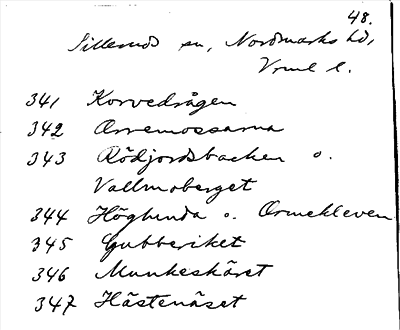 48.
Silleruds sn, Nordmarks hd,
Vrml l.
341 Korvedrågen
342 Orremossarna
343 Rödjordsbacken o.
Vallmoberget
344 Höglunda o. Ormekleven
345 Gubberiket
346 Munkeskäret
347 Hästenäset